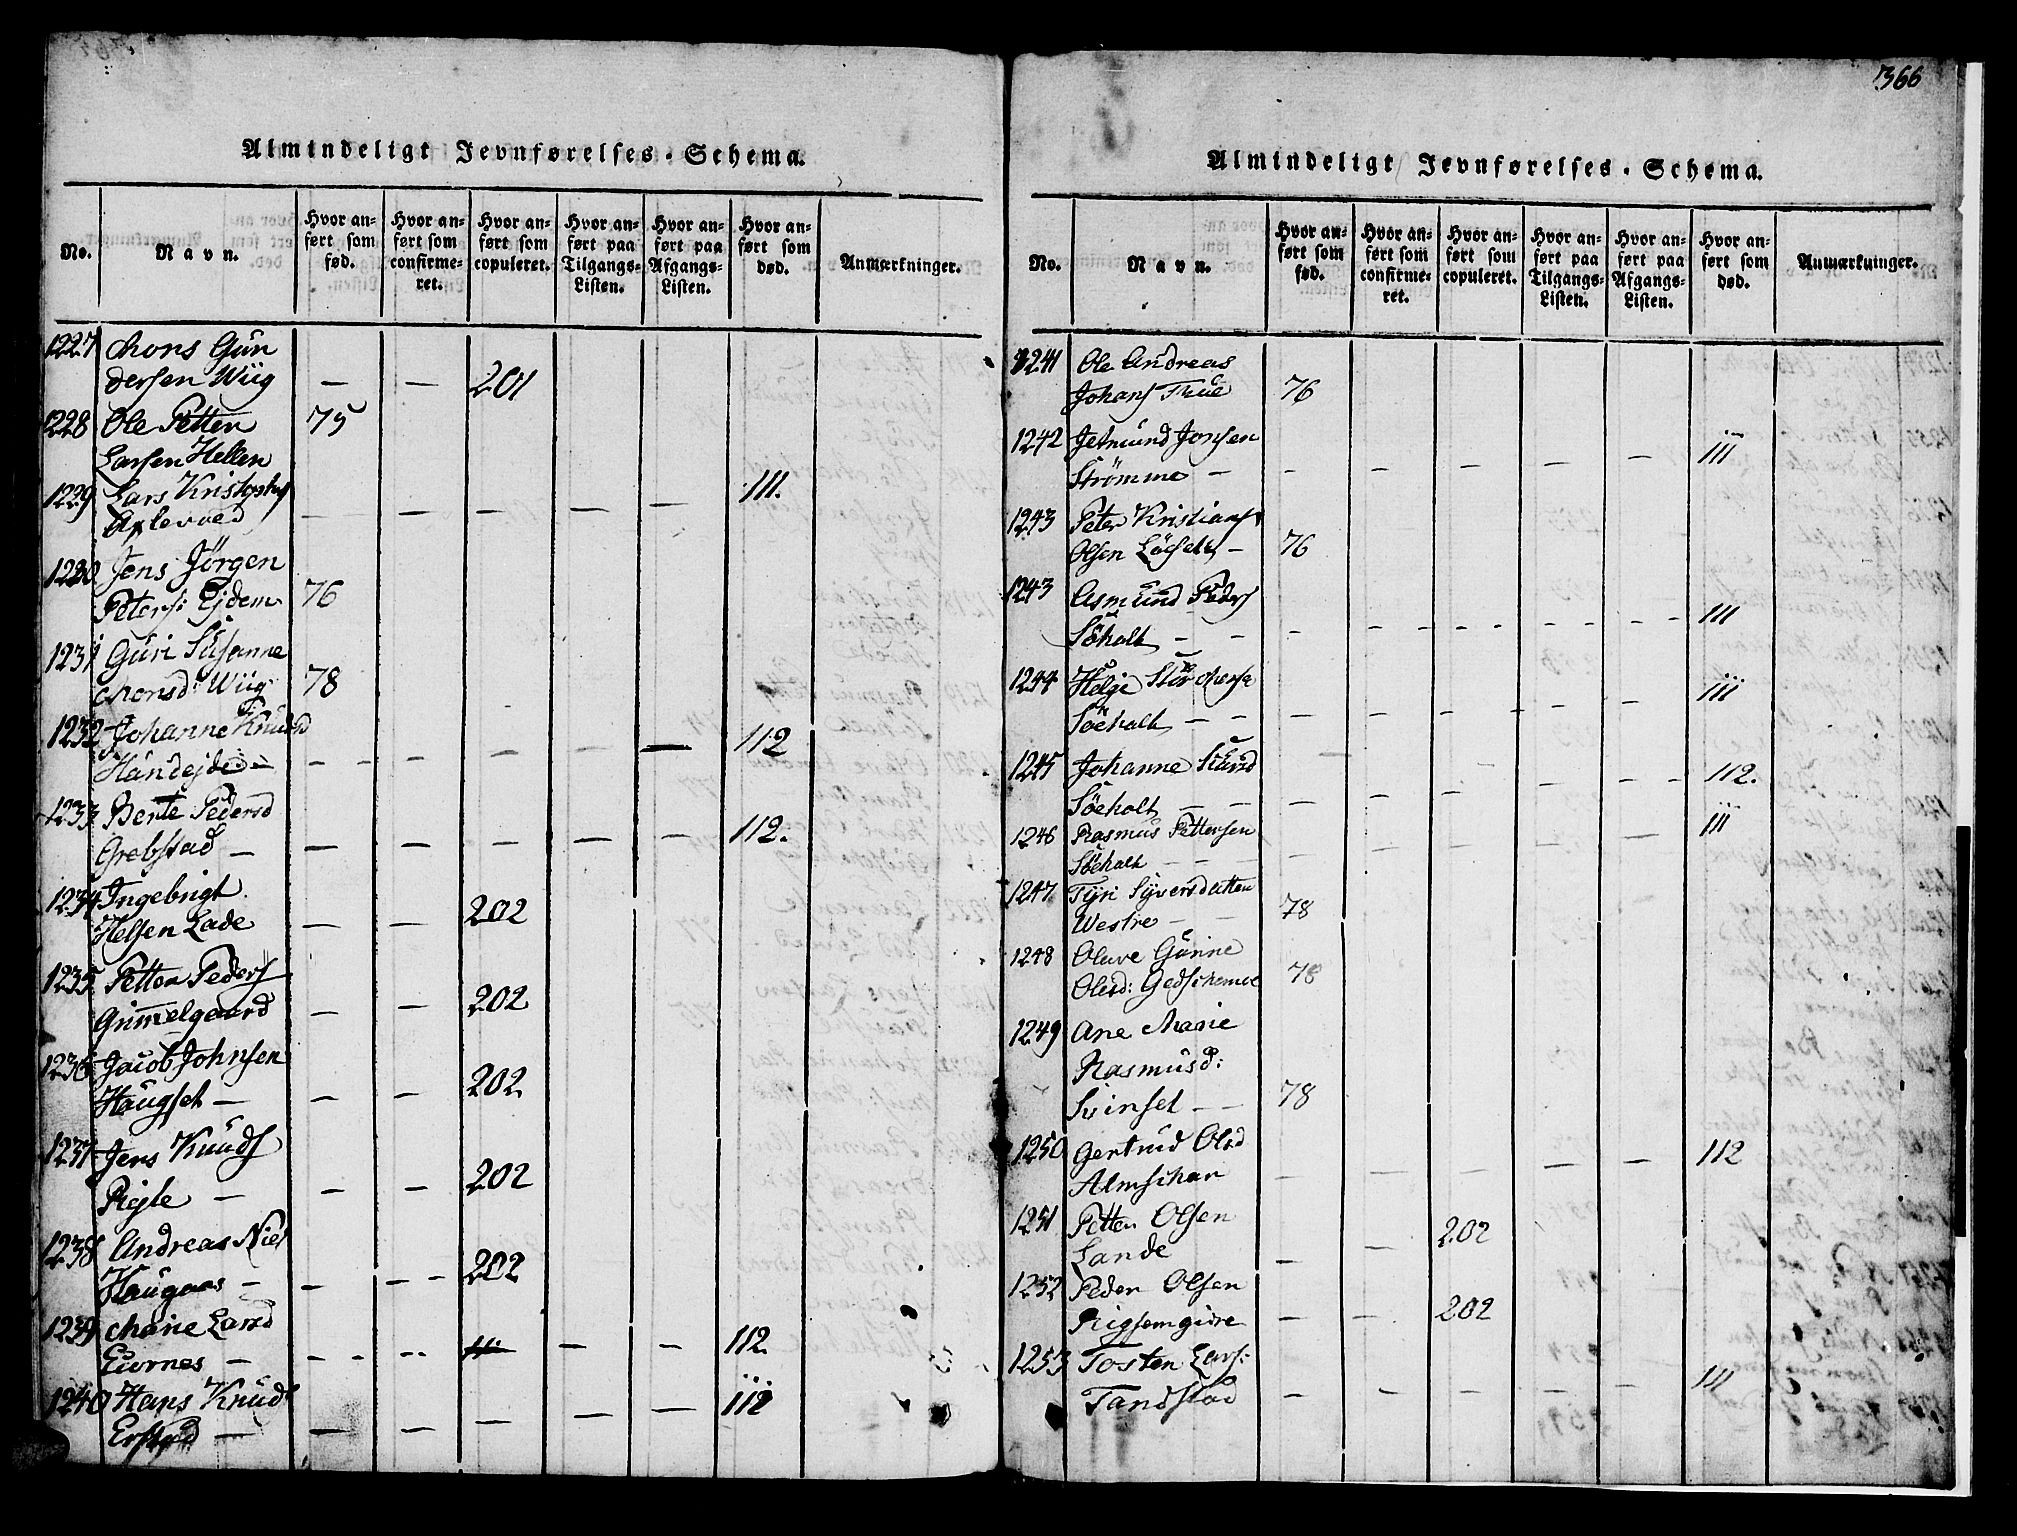 Almindeligt Jevnførelses-Schema.
No.
Navn.
Hvor anført som fød.
Hvor anført som confirmeret.
Hvor anført som copuleret.
Hvor anført paa Tilgangs-Listen.
Hvor anført paa Afgangs-Listen.
Hvor anført som død.
Anmærkninger.
1227 Mons Gun
dersen Wiig — — 201
1228 Ole Petter 75
Larsen Hellen
1229 Lars Kristophs 111.
— — — — —
1230 Jens Jörgen
Peters: Ejdem 76
1231 Guri Susanne
Monsd: Wiig 78
1232 Johanne Knudsd 112
Hundejde — — — — — —
1233 Berte Pedersd 112.
Grebstad — — — — — —
1234 Ingebrigt
Helsen Lade — — 202
1235 Petter Peders
Grimmelgaard — — 202
1236 Jacob Johnsen
Haugset — — — 202
1237 Jens Knuds
Rejte — — — 202
1238 Andreas Niels
Haugaas — — — 202
1239 Marie Larsd
Eurnes — — — — — 112.
1240 Hans Knuds 112
Erstad — — — — — —
366
Almindeligt Jevnførelses-Schema.
No.
Navn.
Hvor anført som fød.
Hvor anført som confirmeret.
Hvor anført som copuleret.
Hvor anført paa Tilgangs-Listen.
Hvor anført paa Afgangs-Listen.
Hvor anført som død.
Anmærkninger.
1241 Ole Andreas
Johans True 76
1242 Jetmund Jonsen 111
Strömme — — — — — —
1243 Peter Kristians
Olsen Löeset — 76
1243 Asmund Peders
Söholt — — — — — — — 111
1244 Helge
Söeholt — — — — — — — 111
1245 Johanne
Söeholt — — — — — — 112.
1246 Rasmus Pettersen 111
Söeholt — — —
1247 Tyri Syversdatter
Westre — — 78
1248 Olave Gunine
Olesd: 78
1249 Ane Marie
Rasmusd:
Svinset — — 78
1250 Gertrud Olsd 112
— — — — —
1251 Petter Olsen
Lande — — 202
1252 Peder Olsen
— — 202
1253 Tosten Lars:
Tandstad — — — — — 111